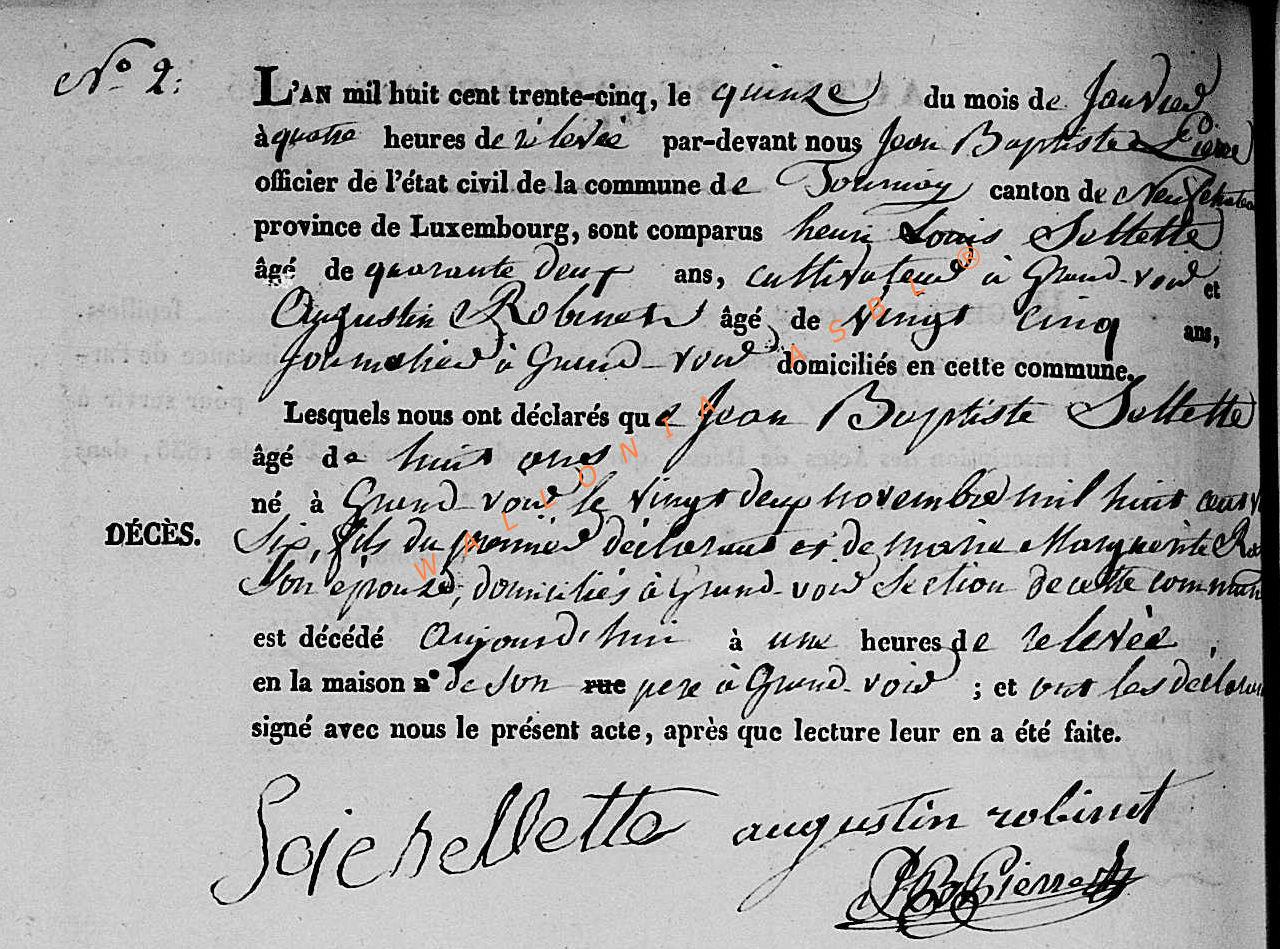 N° 2.
L'AN mil huit cent trente-cinq, le quinze du mois de Janvier
à quatre heures de relevée par-devant nous Jean Baptiste Pierre
officier de l'état civil de la commune de Tournay canton de Neufchateau
province de Luxembourg, sont comparus henri Louis Sellette
âgé de quarante deux ans, cultivateur à Grand-voir et
Augustin Robinet âgé de vingt cinq ans,
journalier à Grand-voir domiciliés en cette commune.
Lesquels nous ont déclarés que Jean Baptiste Sellette
âgé de huit ans
né à Grand voir le vingt deux novembre mil huit cent
Six, fils du premier déclarant et de marie Marguerite
Son épouse, domiciliés à Grand-voir Section de cette commun
DÉCÈS.
est décédé aujourd'hui à une heures de relevée,
en la maison n° de son rue pere à Grand-voir ; et ont les déclaran
signé avec nous le présent acte, après que lecture leur en a été faite.
augustin robinet
JB Pierre
WALLONIA ASBL ®